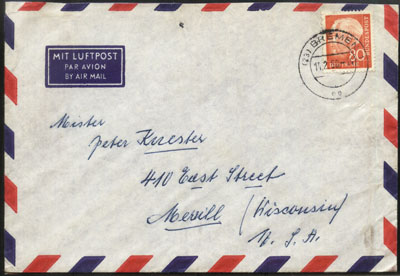 MIT LUFTPOST
PAR AVION
BY AIR MAIL
BREMEN
Mister
Peter Knester
410 East Street
Merill (Wisconsin)
U. S. A.